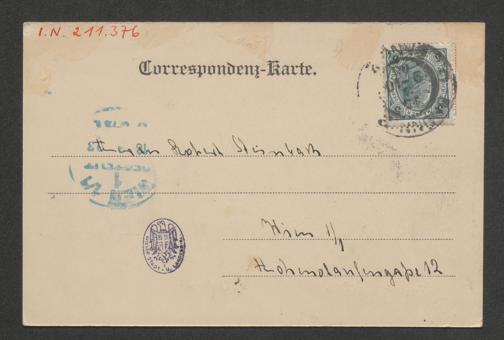 I.N. 211.376
Correspondenz-Karte.
Herrn Robert Steinbach
Wien 1/1
WIEN 1/1
1
Hohenstaufengaße 12